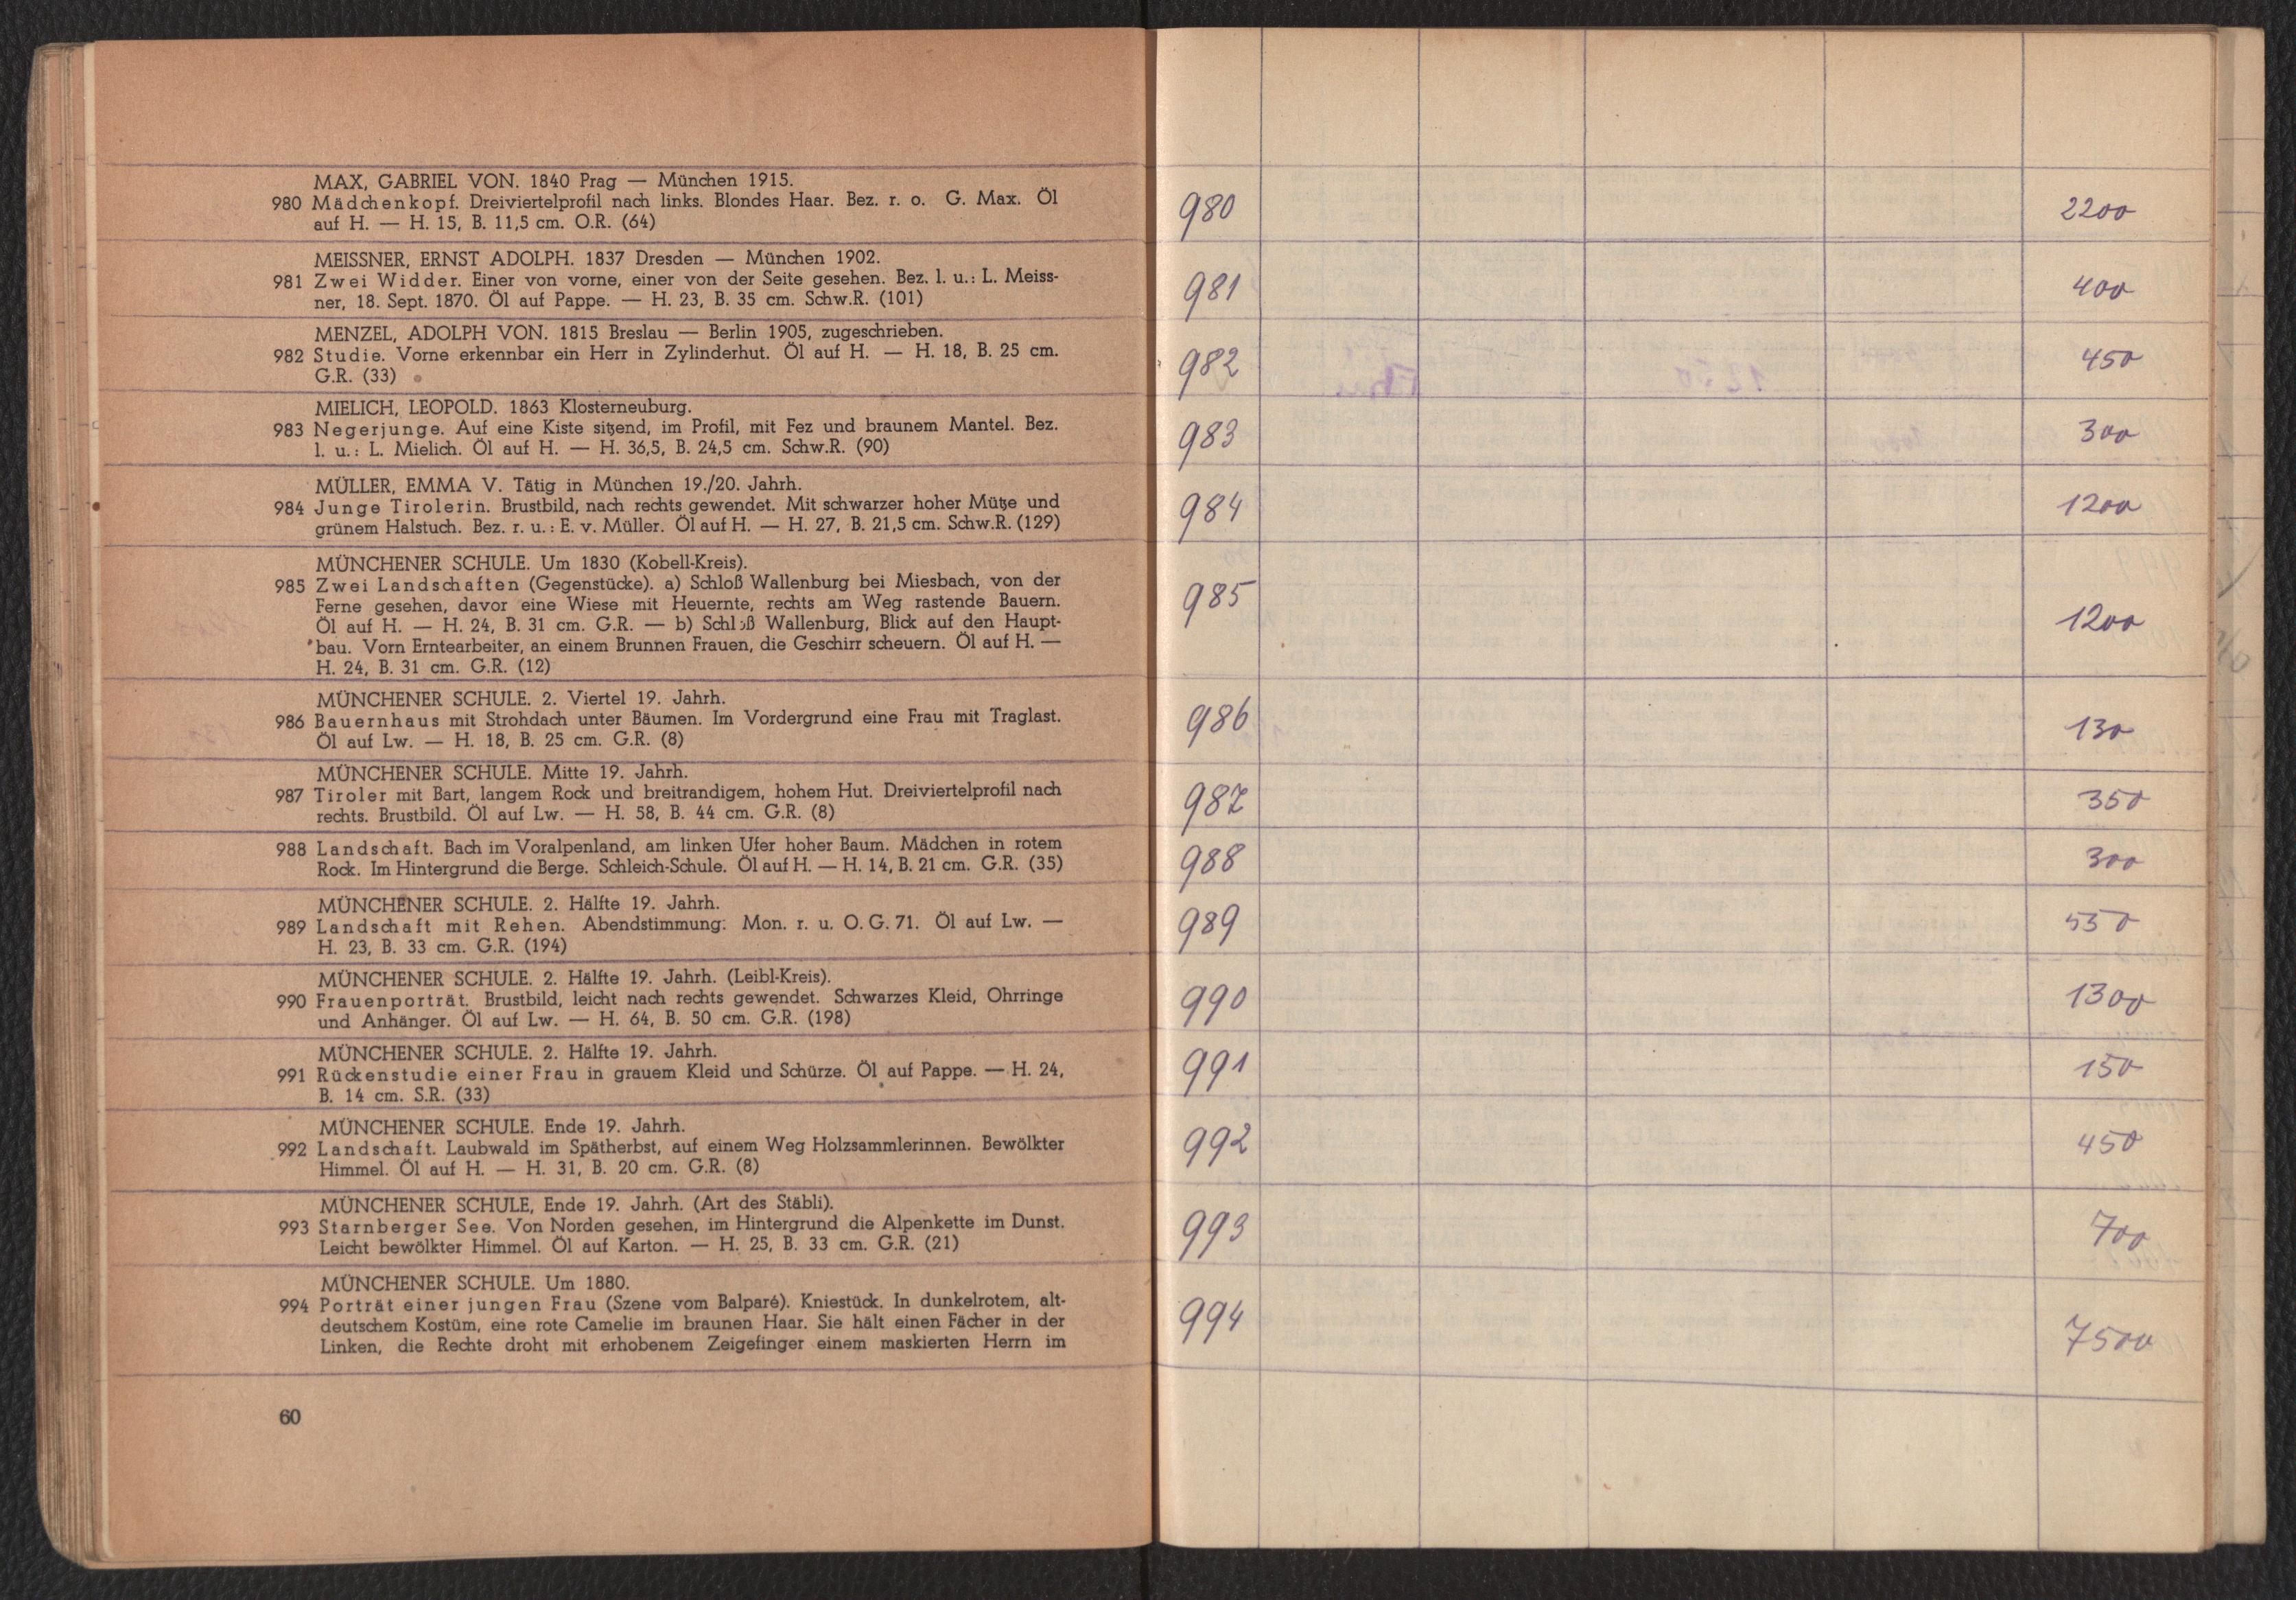 MAX, GABRIEL VON. 1840 Prag — München 1915.
980 Mädchenkopf. Dreiviertelprofil nach links. Blondes Haar. Bez. r. o. G. Max. Öl
auf H. — H. 15, B. 11,5 cm. O.R. (64)
MEISSNER, ERNST ADOLPH. 1837 Dresden — München 1902.
981 Zwei Widder. Einer von vorne, einer von der Seite gesehen. Bez. l. u.: L. Meiss-
ner, 18. Sept. 1870. Öl auf Pappe. — H. 23, B. 35 cm. Schw.R. (101)
MENZEL, ADOLPH VON. 1815 Breslau — Berlin 1905, zugeschrieben.
982 Studie. Vorne erkennbar ein Herr in Zylinderhut. Öl auf H. — H. 18, B. 25 cm.
G.R. (33)
MIELICH, LEOPOLD. 1863 Klosterneuburg.
983 Negerjunge. Auf eine Kiste sitzend, im Profil, mit Fez und braunem Mantel. Bez.
l. u.: L. Mielich. Öl auf H. — H. 36,5, B. 24,5 cm. Schw.R. (90)
MÜLLER, EMMA V. Tätig in München 19./20. Jahrh.
984 Junge Tirolerin. Brustbild, nach rechts gewendet. Mit schwarzer hoher Mütze und
grünem Halstuch. Bez. r. u.: E. v. Müller. Öl auf H. — H. 27, B. 21,5 cm. Schw.R. (129)
MÜNCHENER SCHULE. Um 1830 (Kobell-Kreis).
985 Zwei Landschaften (Gegenstücke). a) Schloß Wallenburg bei Miesbach, von der
Ferne gesehen, davor eine Wiese mit Heuernte, rechts am Weg rastende Bauern.
Öl auf H. — H. 24, B. 31 cm. G.R. — b) Schloß Wallenburg, Blick auf den Haupt-
bau. Vorn Erntearbeiter, an einem Brunnen Frauen, die Geschirr scheuern. Öl auf H. —
H. 24, B. 31 cm. G.R. (12)
MÜNCHENER SCHULE. 2. Viertel 19. Jahrh.
986 Bauernhaus mit Strohdach unter Bäumen. Im Vordergrund eine Frau mit Traglast.
Öl auf Lw. — H. 18, B. 25 cm. G.R. (8)
MÜNCHENER SCHULE. Mitte 19. Jahrh.
987 Tiroler mit Bart, langem Rock und breitrandigem, hohem Hut. Dreiviertelprofil nach
rechts. Brustbild. Öl auf Lw. — H. 58, B. 44 cm. G.R. (8)
988 Landschaft. Bach im Voralpenland, am linken Ufer hoher Baum. Mädchen in rotem
Rock. Im Hintergrund die Berge. Schleich-Schule. Öl auf H. — H. 14, B. 21 cm. G.R. (35)
MÜNCHENER SCHULE. 2. Hälfte 19. Jahrh.
989 Landschaft mit Rehen. Abendstimmung. Mon. r. u. O. G. 71. Öl auf Lw. —
H. 23, B. 33 cm. G.R. (194)
MÜNCHENER SCHULE. 2. Hälfte 19. Jahrh. (Leibl-Kreis).
990 Frauenporträt. Brustbild, leicht nach rechts gewendet. Schwarzes Kleid, Ohrringe
und Anhänger. Öl auf Lw. — H. 64, B. 50 cm. G.R. (198)
MÜNCHENER SCHULE. 2. Hälfte 19. Jahrh.
991 Rückenstudie einer Frau in grauem Kleid und Schürze. Öl auf Pappe. — H. 24,
B. 14 cm. S.R. (33)
MÜNCHENER SCHULE. Ende 19. Jahrh.
992 Landschaft. Laubwald im Spätherbst, auf einem Weg Holzsammlerinnen. Bewölkter
Himmel. Öl auf H. — H. 31, B. 20 cm. G.R. (8)
MÜNCHENER SCHULE, Ende 19. Jahrh. (Art des Stäbli).
993 Starnberger See. Von Norden gesehen, im Hintergrund die Alpenkette im Dunst.
Leicht bewölkter Himmel. Öl auf Karton. — H. 25, B. 33 cm. G.R. (21)
MÜNCHENER SCHULE. Um 1880.
994 Porträt einer jungen Frau (Szene vom Balparé). Kniestück. In dunkelrotem, alt-
deutschem Kostüm, eine rote Camelie im braunen Haar. Sie hält einen Fächer in der
Linken, die Rechte droht mit erhobenem Zeigefinger einem maskierten Herrn im
60
980 2200
981 400
982 450
983 300
984 1200
985 1200
986 130
987 350
988 300
989 550
990 1300
991 150
992 450
993 700
994 7500